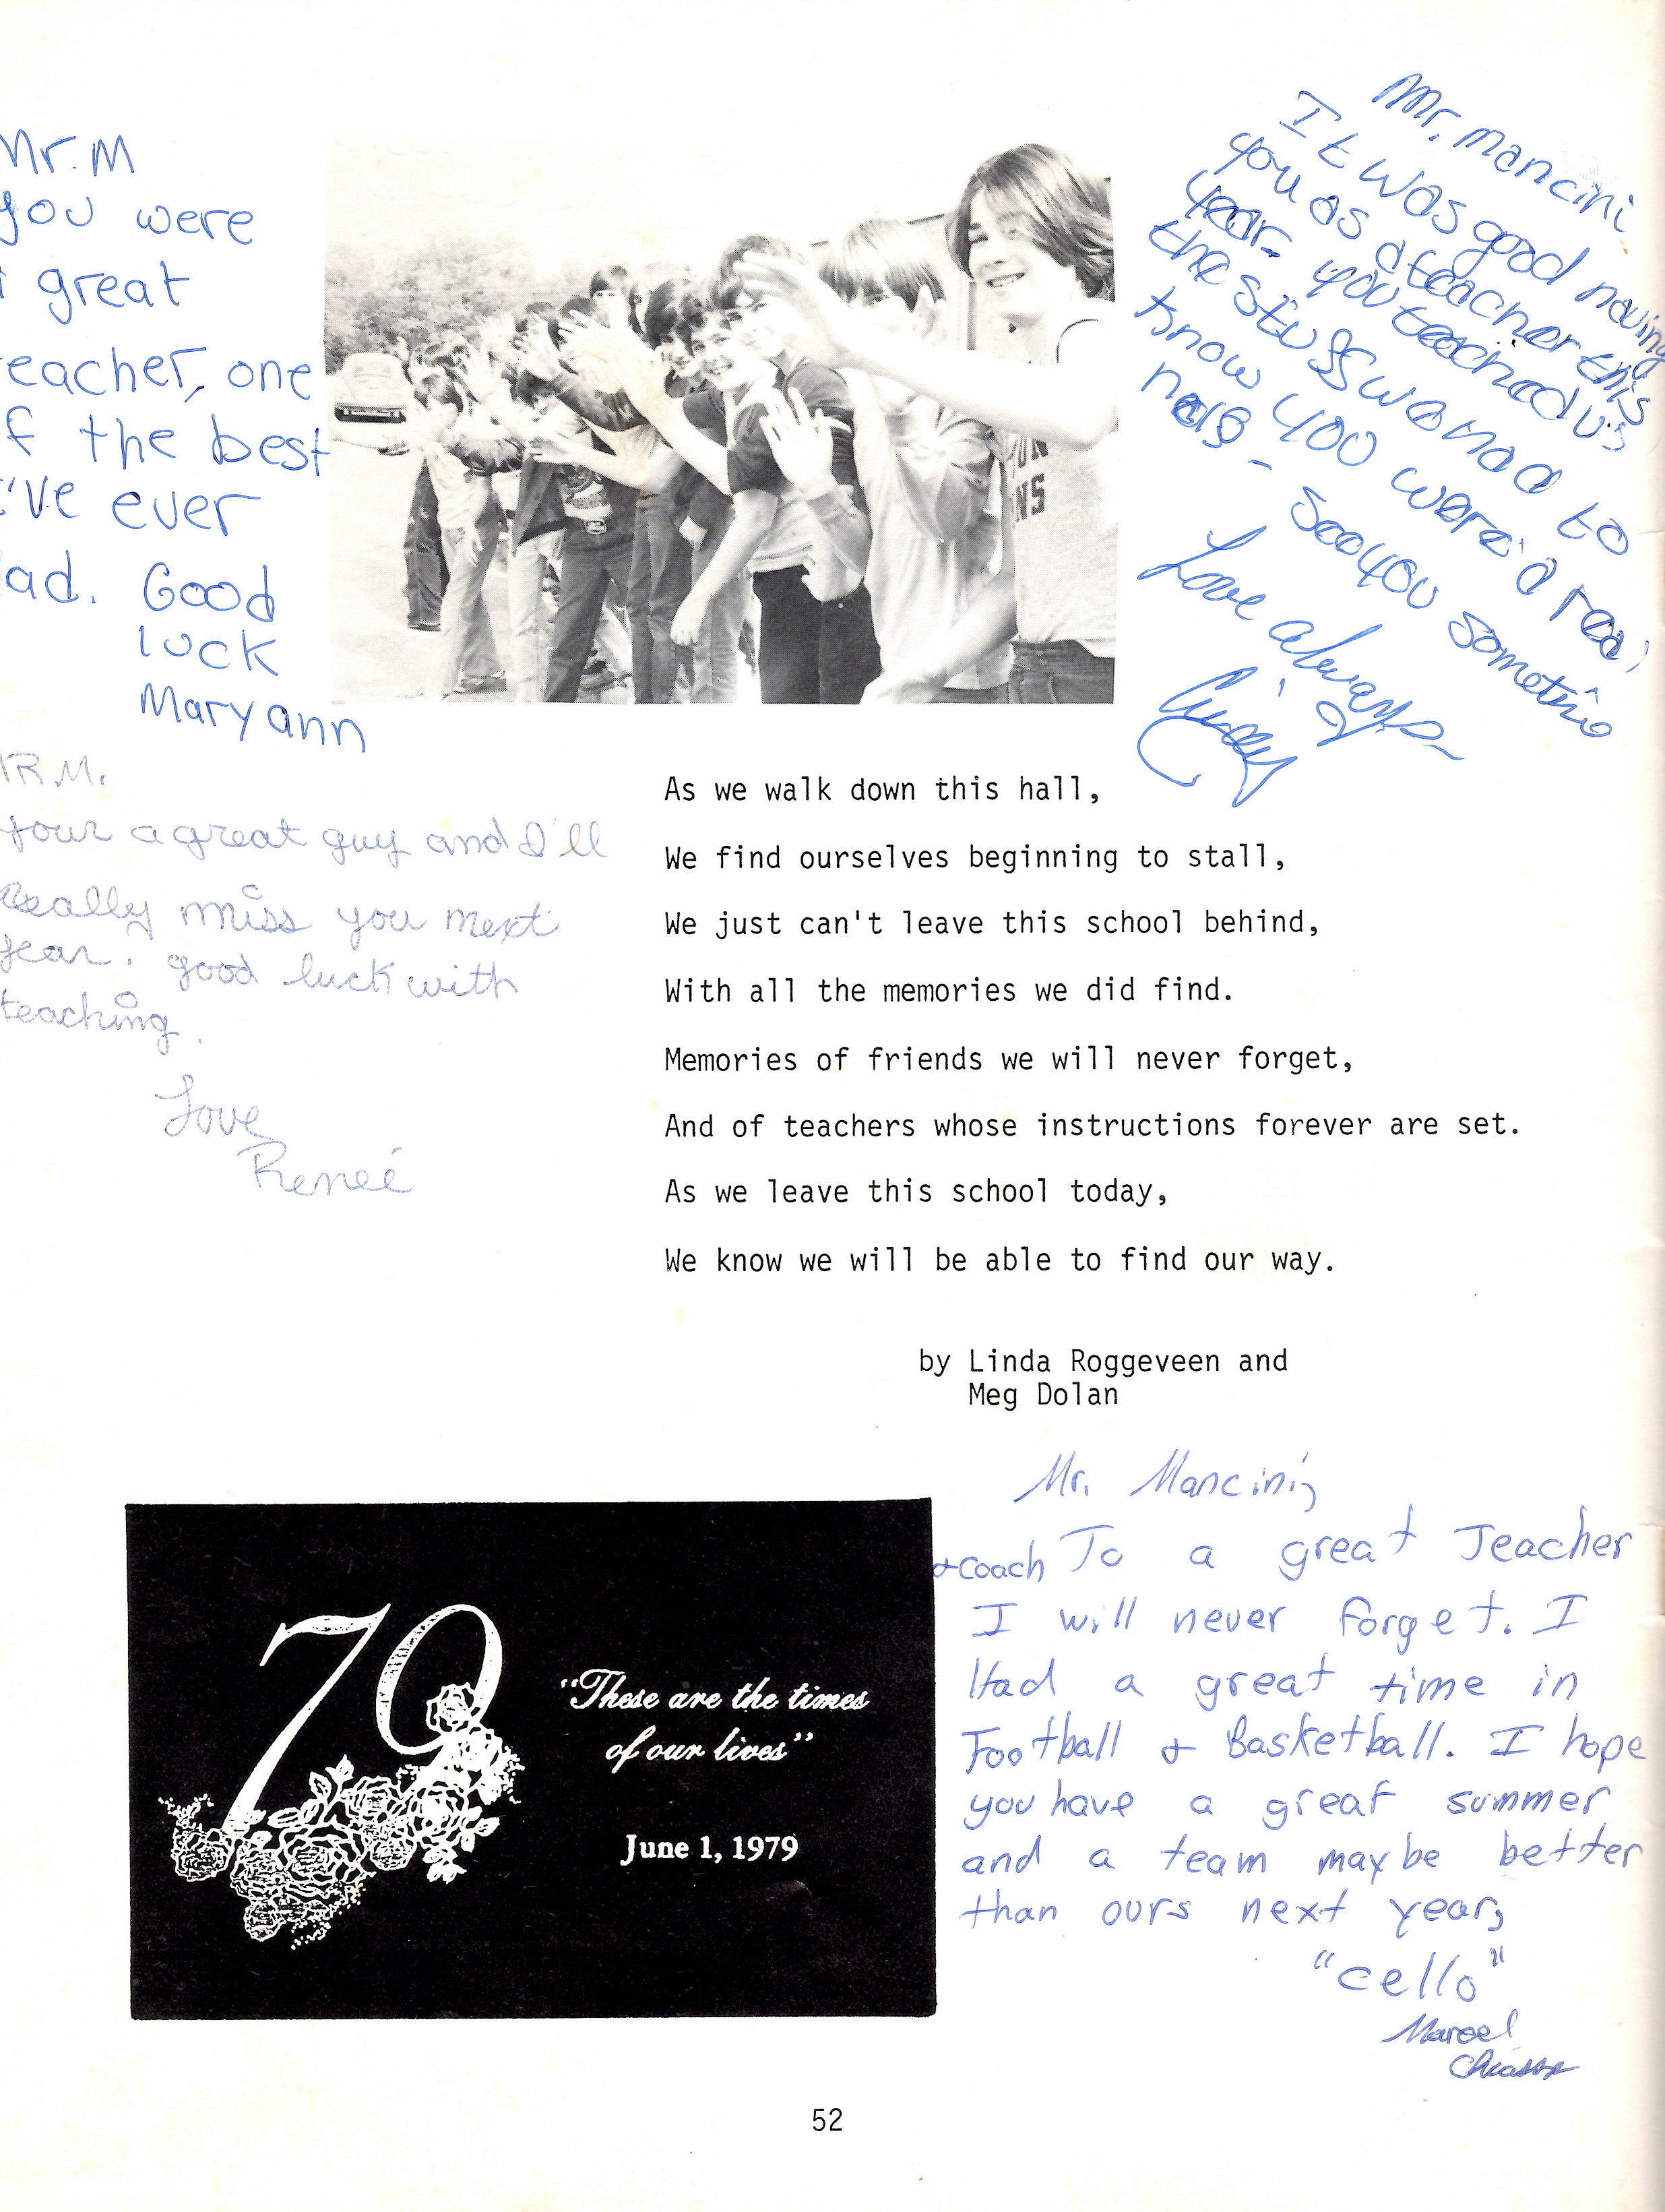 Mr. M
you were
great
eacher, one
f the best
've ever
ad. Good
luck
Maryann
Mr. Mancini
It was good having
you as a teacher this
year. you teached us
the stuff we had to
know you were a real
help - See you sometime
Love always
Cindy
ON
NS
R.M.
your a great guy and I'll
Really miss you next
year. good luck with
teaching.
Love
Reneé
As we walk down this hall,
We find ourselves beginning to stall,
We just can't leave this school behind,
With all the memories we did find.
Memories of friends we will never forget,
And of teachers whose instructions forever are set.
As we leave this school today,
We know we will be able to find our way.
by Linda Roggeveen and
Meg Dolan
79
"These are the times
of our lives"
June 1, 1979
Mr. Mancini,
+ Coach To a great Teacher
I will never forget. I
Had a great time in
Football + Basketball. I hope
you have a great summer
and a team maybe better
than ours next year,
"cello"
Marcel
52